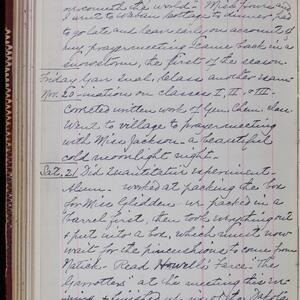 beneath the world - Miss Jones and
I went to Waban Cottage to dinner, had
to go late and leave early on account of
my prayer meeting. Came back in a
snowstorm, the first of the season.
Friday Gave Qual. Class another exam-
Nov. 20 inations on classes I, II, + III.
Corrected written work of Gen. Chem.
Went to village to prayermeeting
with Miss Jackson - a beautiful
cold moonlight night -
Sat. 21 Did Quantitative experiment.
Alum. - worked at packing the box
for Miss Glidden. We packed in a
barrel first, then took everything out
+ put into a box, which must now
wait for the pincushions to come from
Natick - Read Howell's Farce "The
Garroters" at the meeting this